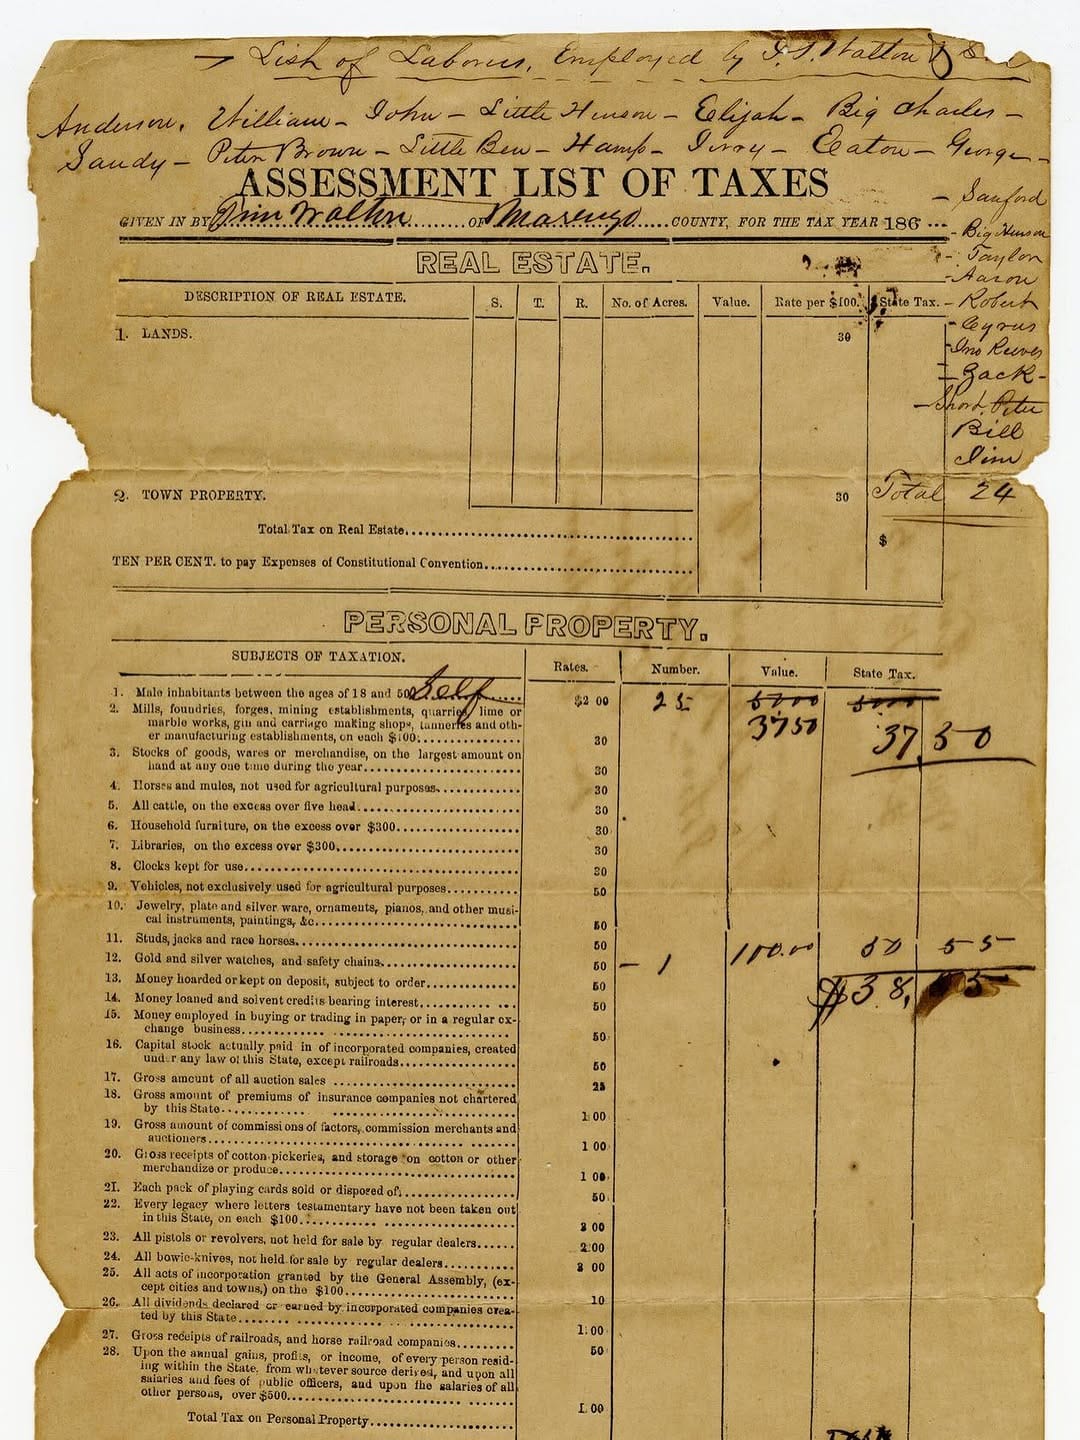 List of Laborers, Employed by J. S. Walton
Anderson, William - John - Little Henson - Elijah - Big Charles -
Sandy - Peter Brown - Little Ben - Hamp - Jerry - Eaton - George -
ASSESSMENT LIST OF TAXES
- Sanford
GIVEN IN BY Jim Walton OF Marengo COUNTY, FOR THE TAX YEAR 186
- Big Henson
- Taylor
REAL ESTATE.
- Aaron
DESCRIPTION OF REAL ESTATE. S. T. R. No. of Acres. Value. Rate per $100. State Tax.
- Robert
- Cyrus
1. LANDS. 30
- Jno Reeves
- Zack -
- Short Peter
Bill
Jim
2. TOWN PROPERTY. 30 Total 24
Total Tax on Real Estate
$
TEN PER CENT. to pay Expenses of Constitutional Convention
PERSONAL PROPERTY.
SUBJECTS OF TAXATION. Rates. Number. Value. State Tax.
1. Male inhabitants between the ages of 18 and 50, Self $2 00 25 5000 5000
2. Mills, foundries, forges, mining establishments, quarries, lime or
marble works, gin and carriage making shops, tanneries and oth-
er manufacturing establishments, on each $100: 30 3750 37 50
3. Stocks of goods, wares or merchandise, on the largest amount on
hand at any one time during the year 30
4. Horses and mules, not used for agricultural purposes 30
5. All cattle, on the excess over five head 30
6. Household furniture, on the excess over $300 30
7. Libraries, on the excess over $300 30
8. Clocks kept for use 30
9. Vehicles, not exclusively used for agricultural purposes 50
10. Jewelry, plate and silver ware, ornaments, pianos, and other musi-
cal instruments, paintings, &c 50
11. Studs, jacks and race horses 50
12. Gold and silver watches, and safety chains 50 - 1 100.00 50 55
13. Money hoarded or kept on deposit, subject to order 50 $38, 05
14. Money loaned and solvent credits bearing interest 50
15. Money employed in buying or trading in paper, or in a regular ex-
change business 50
16. Capital stock actually paid in of incorporated companies, created
under any law of this State, except railroads 50
17. Gross amount of all auction sales 25
18. Gross amount of premiums of insurance companies not chartered
by this State 1 00
19. Gross amount of commissions of factors, commission merchants and
auctioners 1 00
20. Gross receipts of cotton pickeries, and storage on cotton or other
merchandize or produce 1 00
21. Each pack of playing cards sold or disposed of 50
22. Every legacy where letters testamentary have not been taken out
in this State, on each $100 2 00
23. All pistols or revolvers, not held for sale by regular dealers 2 00
24. All bowie-knives, not held for sale by regular dealers 3 00
25. All acts of incorporation granted by the General Assembly, (ex-
cept cities and towns,) on the $100 10
26. All dividends declared or earned by incorporated companies crea-
ted by this State 1 00
27. Gross receipts of railroads, and horse railroad companies 50
28. Upon the annual gains, profits, or income, of every person resid-
ing within the State, from whatever source derived, and upon all
salaries and fees of public officers, and upon the salaries of all
other persons, over $500 1 00
Total Tax on Personal Property